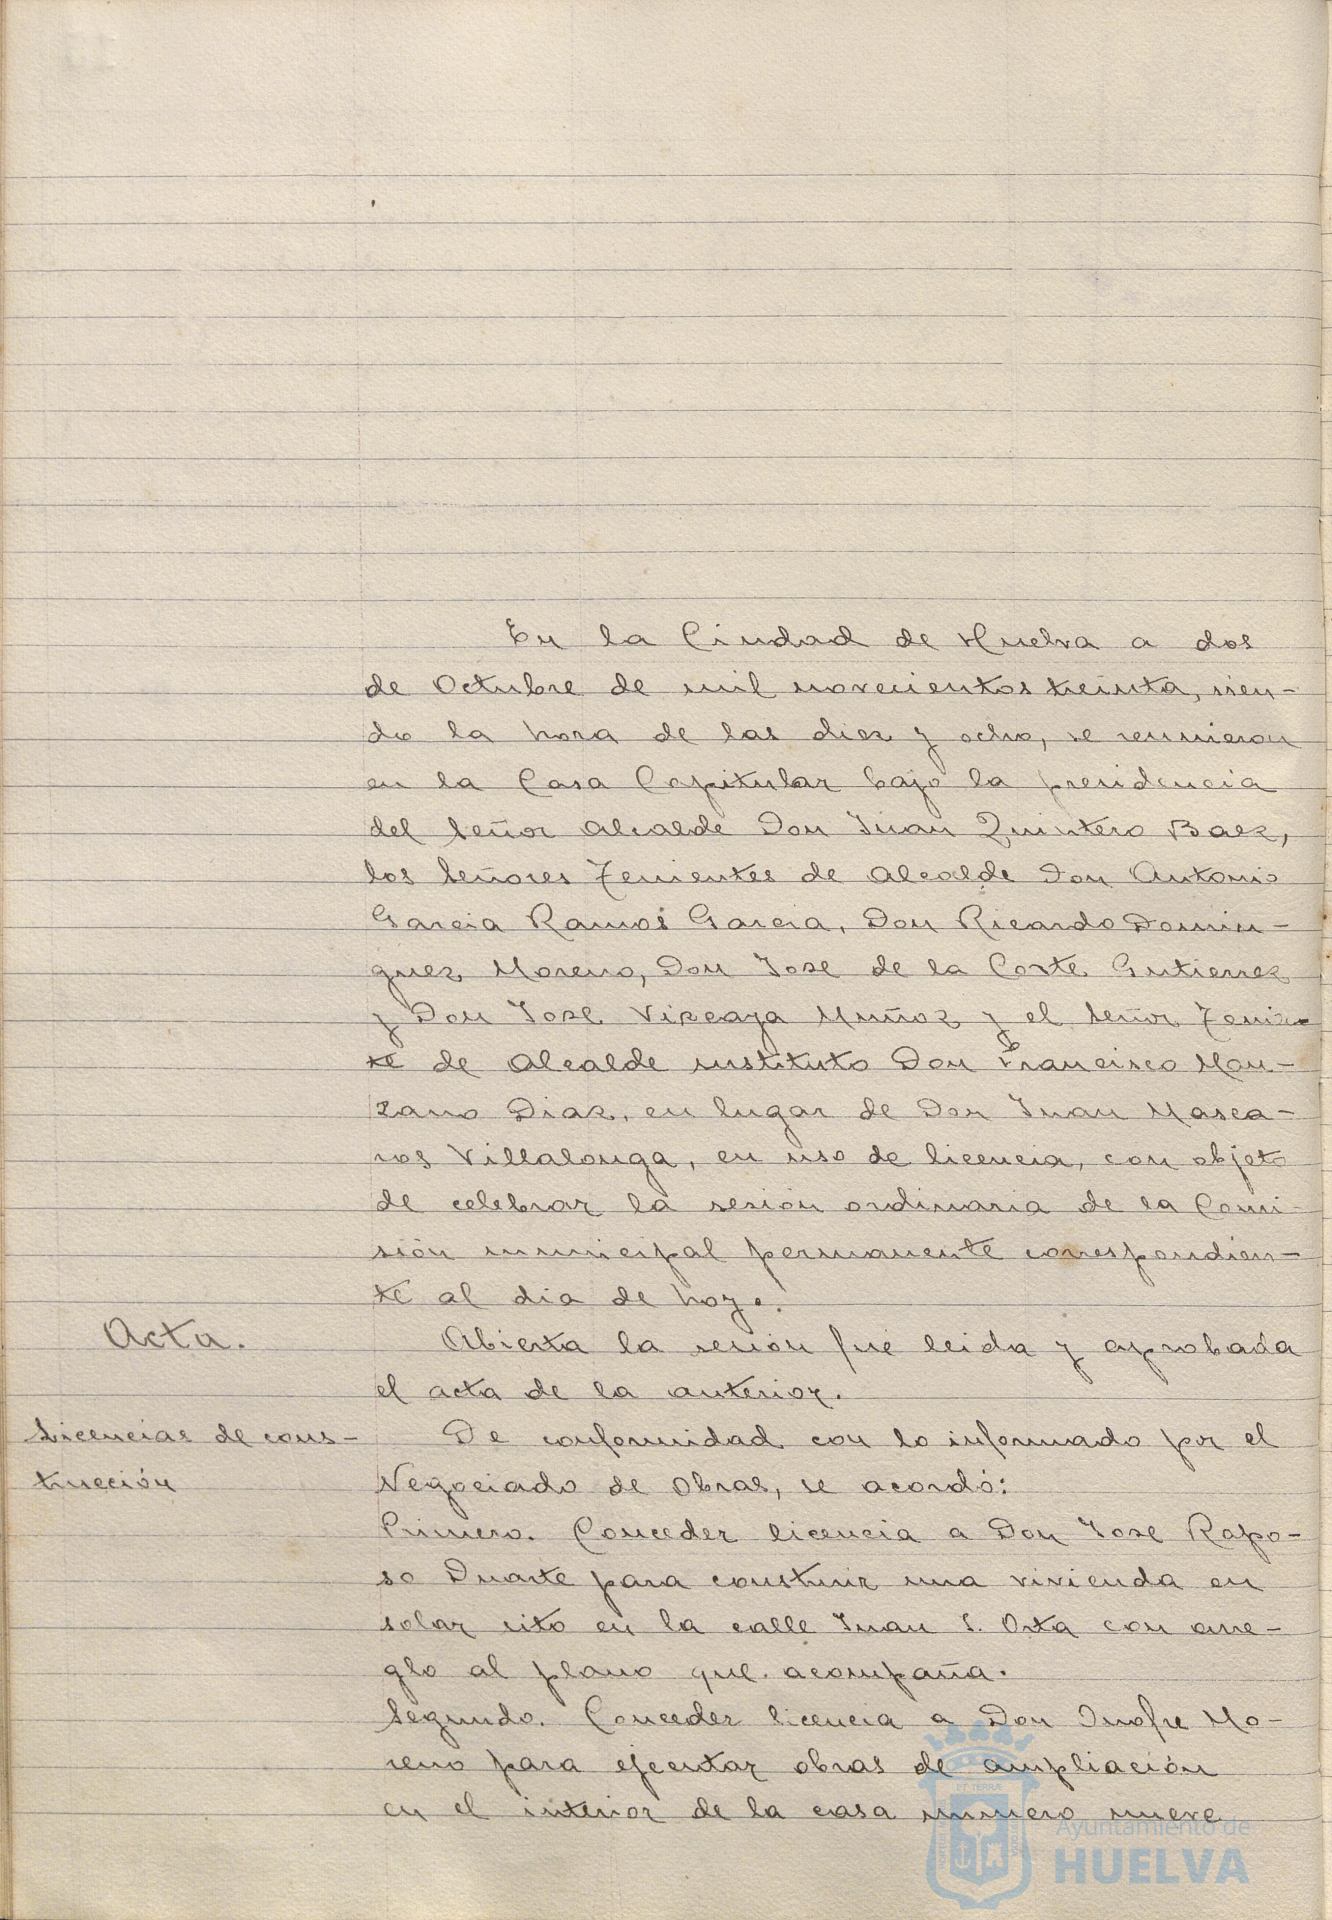 En la Ciudad de Huelva a dos
de Octubre de mil novecientos treinta, sien-
do la hora de las diez y ocho, se reunieron
en la Casa Capitular bajo la presidencia
del Señor Alcalde Don Juan Quintero Baez,
los Señores Tenientes de Alcalde Don Antonio
Garcia Ramos Garcia, Don Ricardo Domin-
guez Moreno, Don Jose de la Corte Gutierrez
y Don Jose Vizcaya Muñoz y el Señor Tenien-
te de Alcalde sustituto Don Francisco Man-
zano Diaz, en lugar de Don Juan Masca-
ros Villalonga, en uso de licencia, con objeto
de celebrar la sesión ordinaria de la Comi-
sión municipal permanente correspondien-
te al dia de hoy.
Acta.
Abierta la sesión fué leida y aprobada
el acta de la anterior.
Licencias de cons-
trucción
De conformidad con lo informado por el
Negociado de Obras, se acordó:
Primero. Conceder licencia a Don Jose Rapo-
so Duarte para construir una vivienda en
solar sito en la calle Juan S. Orta con arre-
glo al plano que acompaña.
Segundo. Conceder licencia a Don Onofre Mo-
reno para ejecutar obras de ampliación
en el interior de la casa numero nueve
ET TERRÆ
Ayuntamiento de
HUELVA